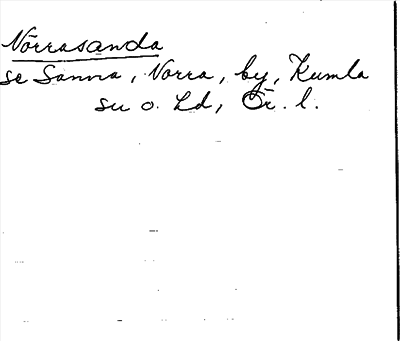 Norrasanda
se Sanna, Norra, by, Kumla
su o. hd, Ör. l.